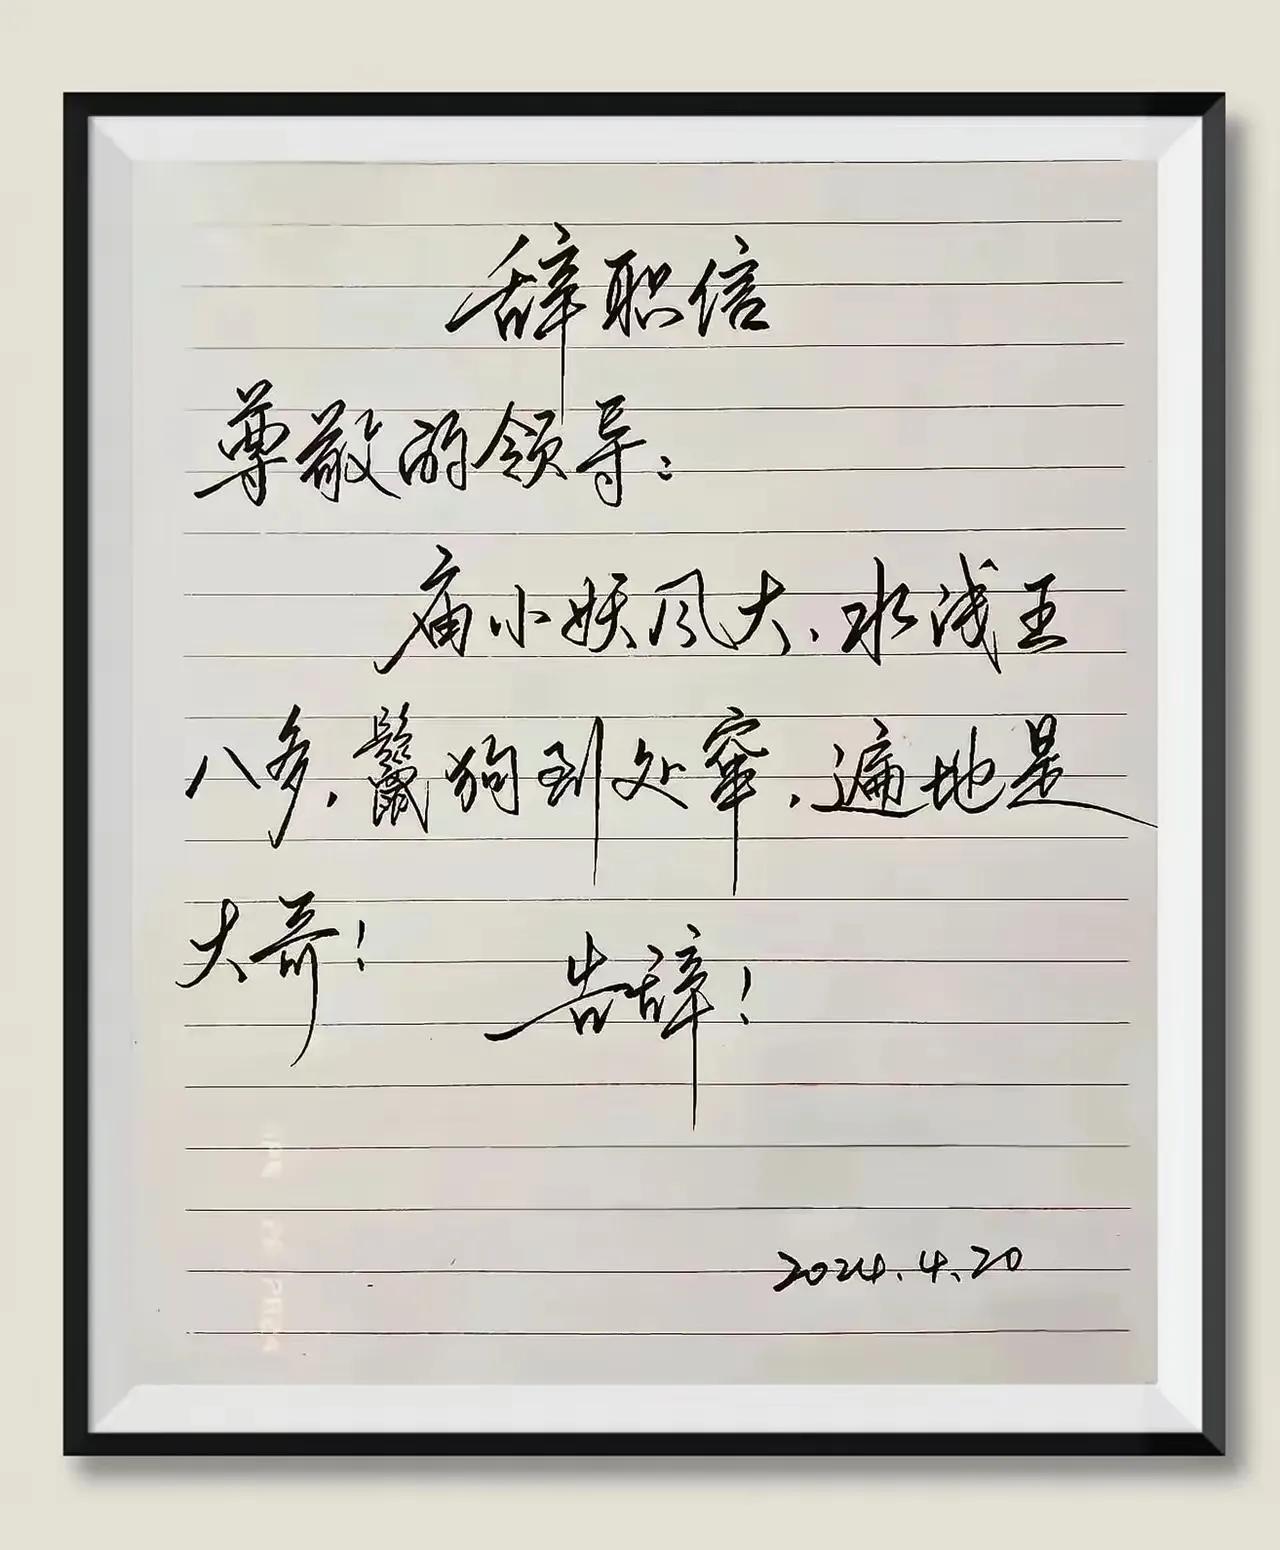 辞职信
尊敬的领导:
庙小妖风大,水浅王
八多,鬣狗到处窜,遍地是
大哥!
告辞!
2024.4.20